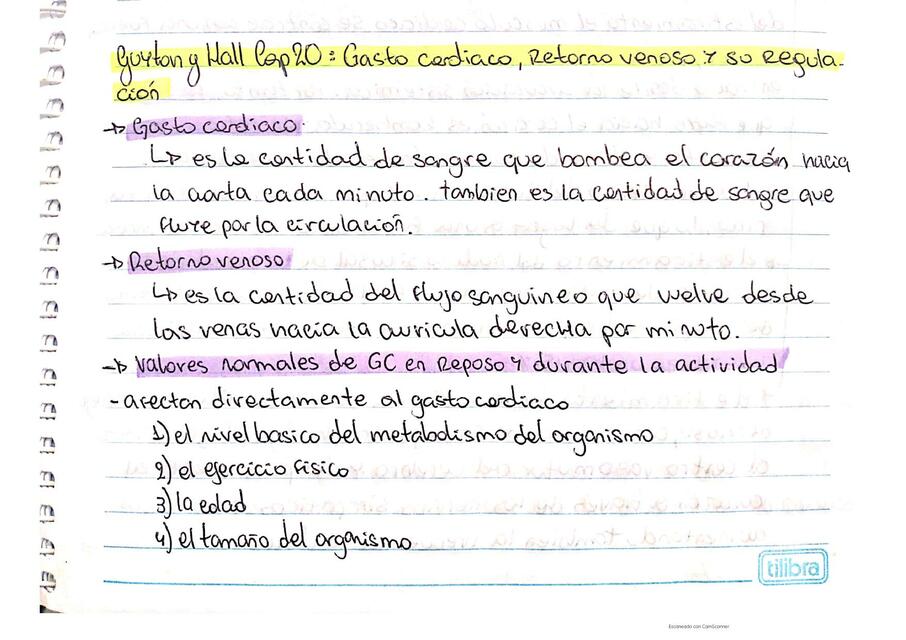 Guyton y Hall Cap20: Gasto cardiaco, Retorno venoso y su Regula-
ción
→ Gasto cardiaco.
↳ es la cantidad de sangre que bombea el corazón hacia
la aorta cada minuto. tambien es la cantidad de sangre que
fluye por la circulación.
→ Retorno venoso
↳ es la cantidad del flujo sanguineo que vuelve desde
las venas hacia la auricula derecha por minuto.
→ Valores normales de GC en Reposo y durante la actividad
- afectan directamente al gasto cardiaco
1) el nivel basico del metabolismo del organismo
2) el ejercicio fisico
3) la edad
4) el tamaño del organismo
tilibra
Escaneado con CamScanner